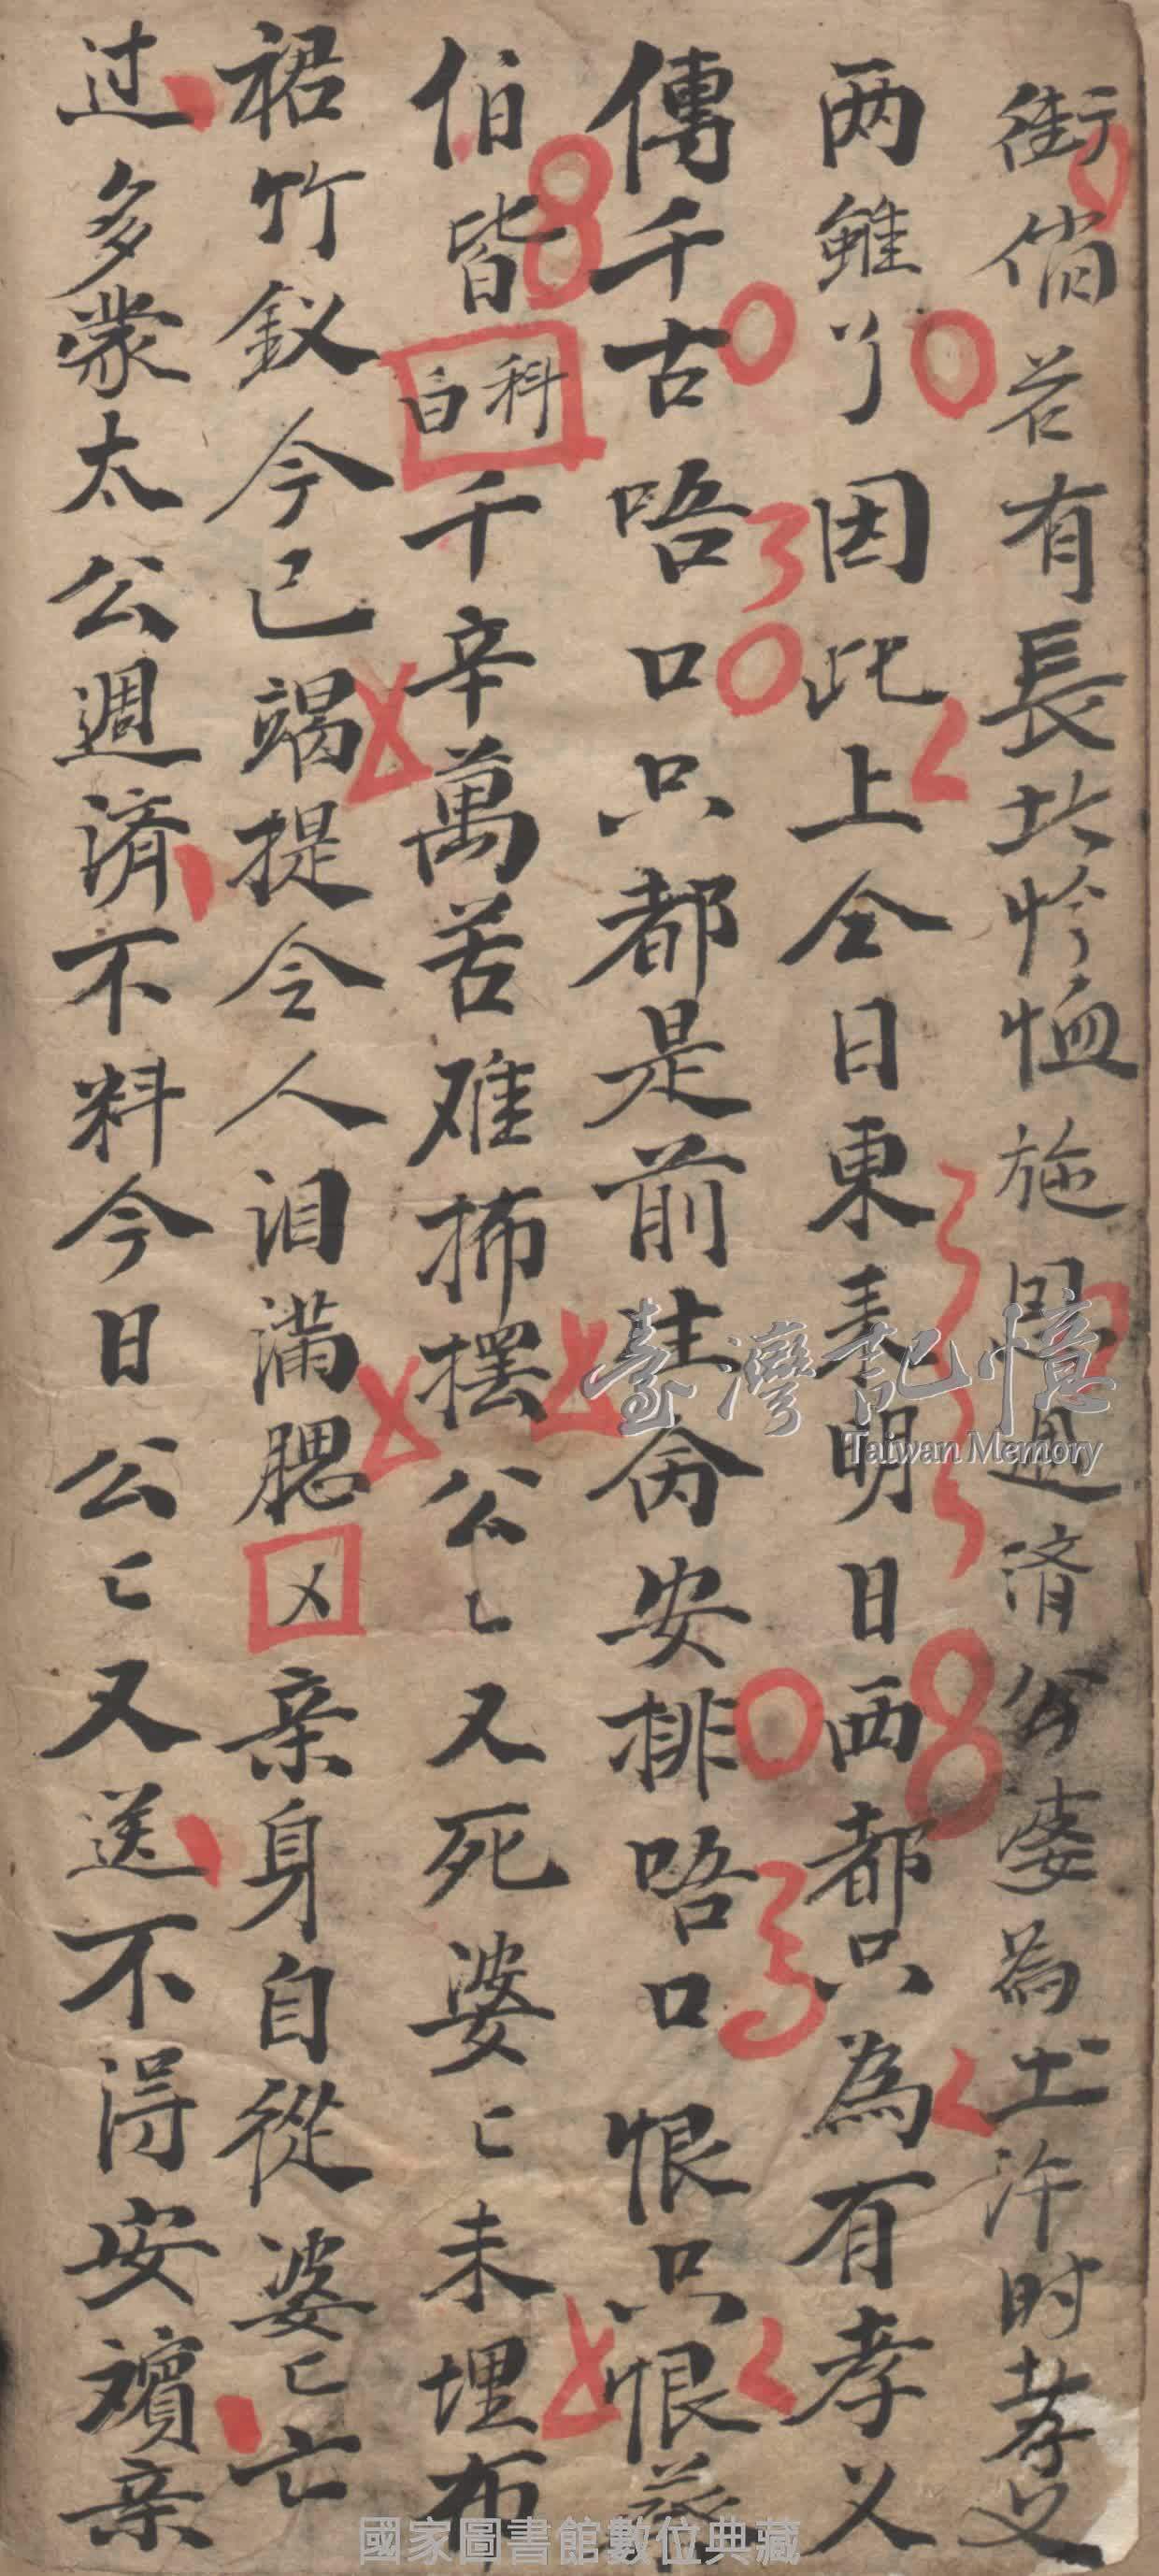 街俏若有長者怜恤施回週済公婆為土許時孝义
两雖丫因此上今日東来明日西都只為有孝义
傳千古唔口只都是前生命安排唔口恨只恨蔡
伯皆
科白
千辛萬苦难捈摆公〻又死婆〻未埋布
裙竹釵今已竭提令人泪滿腮
乂
亲身自從婆〻亡
过多蒙太公週済不料今日公〻又送不得安殯亲
臺灣記憶
Taiwan Memory
國家圖書館數位典藏